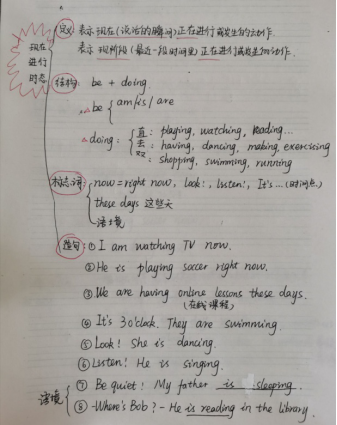 现在
进行
时态
定义: 表示现在(说话的瞬间)正在进行或发生的动作.
表示现阶段(最近一段时间里)正在进行或发生的动作.
结构: be + doing
△be { am/is/are
△doing: { 直: playing, watching, reading...
去: having, dancing, making, exercising
双: shopping, swimming, running
标志词 { now=right now, look!, listen!, It's...(时间点)
these days 这些天
语境
造句: ① I am watching TV now.
② He is playing soccer right now.
③ We are having online lessons these days.
(在线课程)
④ It's 3 o'clock. They are swimming.
⑤ Look! She is dancing.
⑥ Listen! He is singing.
语境 { ⑦ Be quiet! My father is sleeping.
⑧ -Where's Bob? - He is reading in the library.